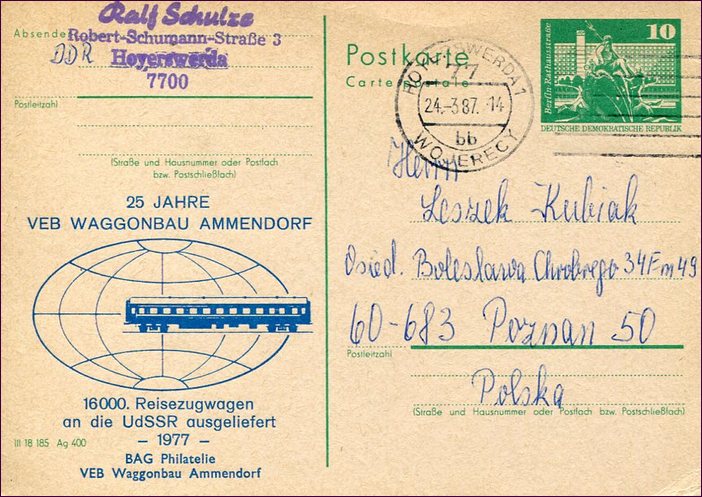 Ralf Schulze
Absende
Robert-Schumann-Straße 3
DDR
Hoyerswerda
7700
Postleitzahl
(Straße und Hausnummer oder Postfach
bzw. Postschließfach)
25 JAHRE
VEB WAGGONBAU AMMENDORF
16000. Reisezugwagen
an die UdSSR ausgeliefert
– 1977 –
BAG Philatelie
VEB Waggonbau Ammendorf
III 18 185 Ag 400
Postkarte
Carte Postale
HOYERSWERDA 1
77
24.-3.87.-14
bb
WOJERECY
10
Berlin, Rathausstraße
DEUTSCHE DEMOKRATISCHE REPUBLIK
Herrn
Leszek Kubiak
Osied. Bolesława Chrobrego 34F m 49
60-683 Poznan 50
Postleitzahl
Polska
(Straße und Hausnummer oder Postfach bzw. Postschließfach)